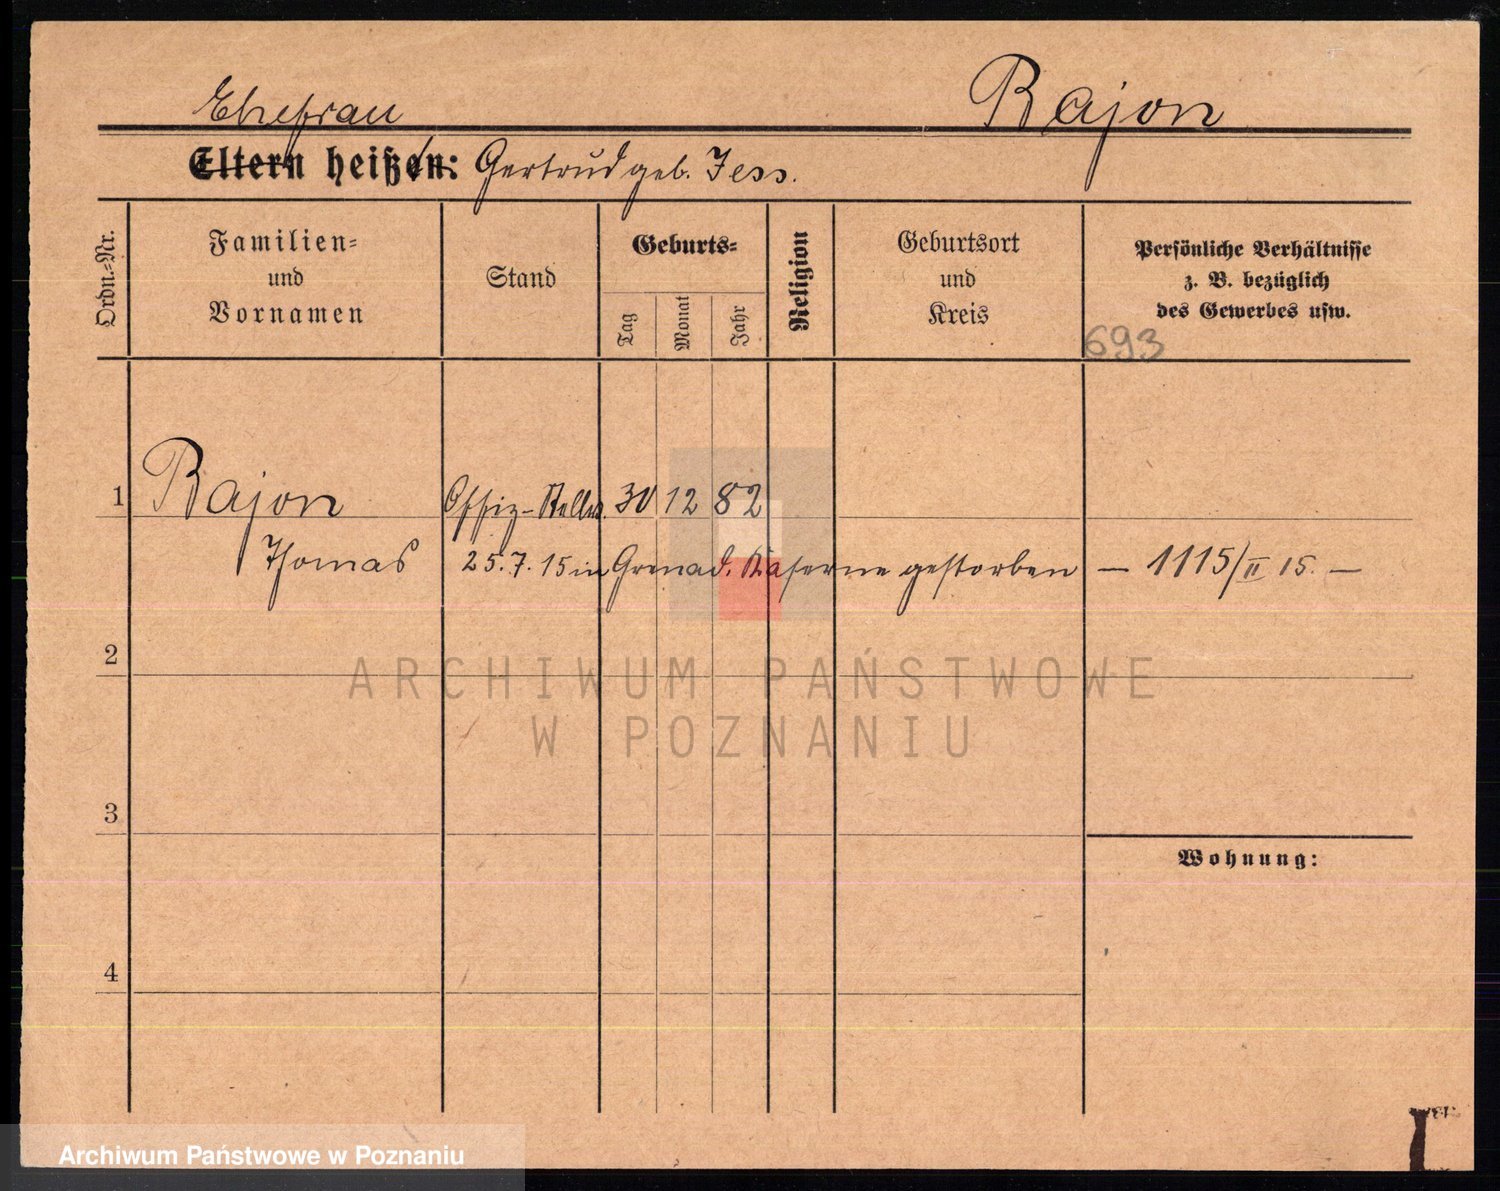 Ehefrau Rajon
Eltern heißen: Gertrud geb. Jess.
Ordn.-Nr.
Familien-
und
Vornamen
Stand
Geburts-
Tag
Monat
Jahr
Religion
Geburtsort
und
Kreis
Persönliche Verhältnisse
z. B. bezüglich
des Gewerbes usw.
693
1 Rajon Offiz-Stellv. 30 12 82
Thomas 25.7.15 in Grenad. Kaserne gestorben — 1115/II 15. —
2
ARCHIWUM PAŃSTWOWE
W POZNANIU
3
Wohnung:
4
Archiwum Państwowe w Poznaniu